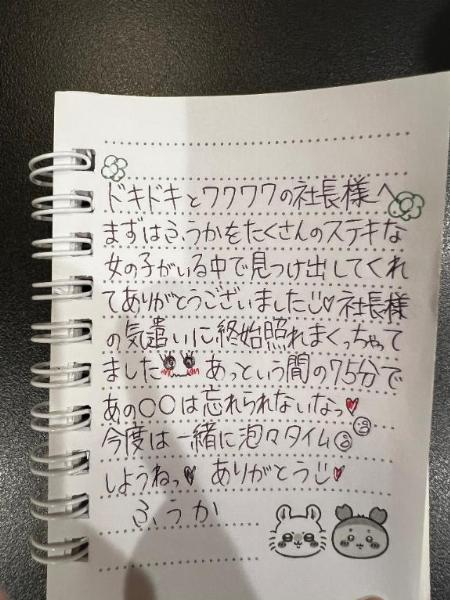 ドキドキとワクワクの社長様へ
まずはふうかをたくさんのステキな
女の子がいる中で見つけ出してくれ
てありがとうございました♡社長様
の気遣いに終始照れまくっちゃって
ました あっという間の75分で
あの○○は忘れられないなっ♥
今度は一緒に泡々タイム
しようねっ♥ ありがとう♥
ふうか